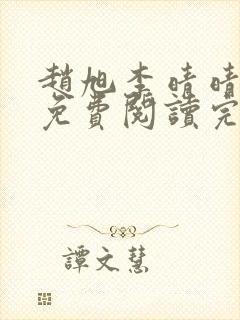 趙旭李晴晴
免費閱讀完
譚文慧